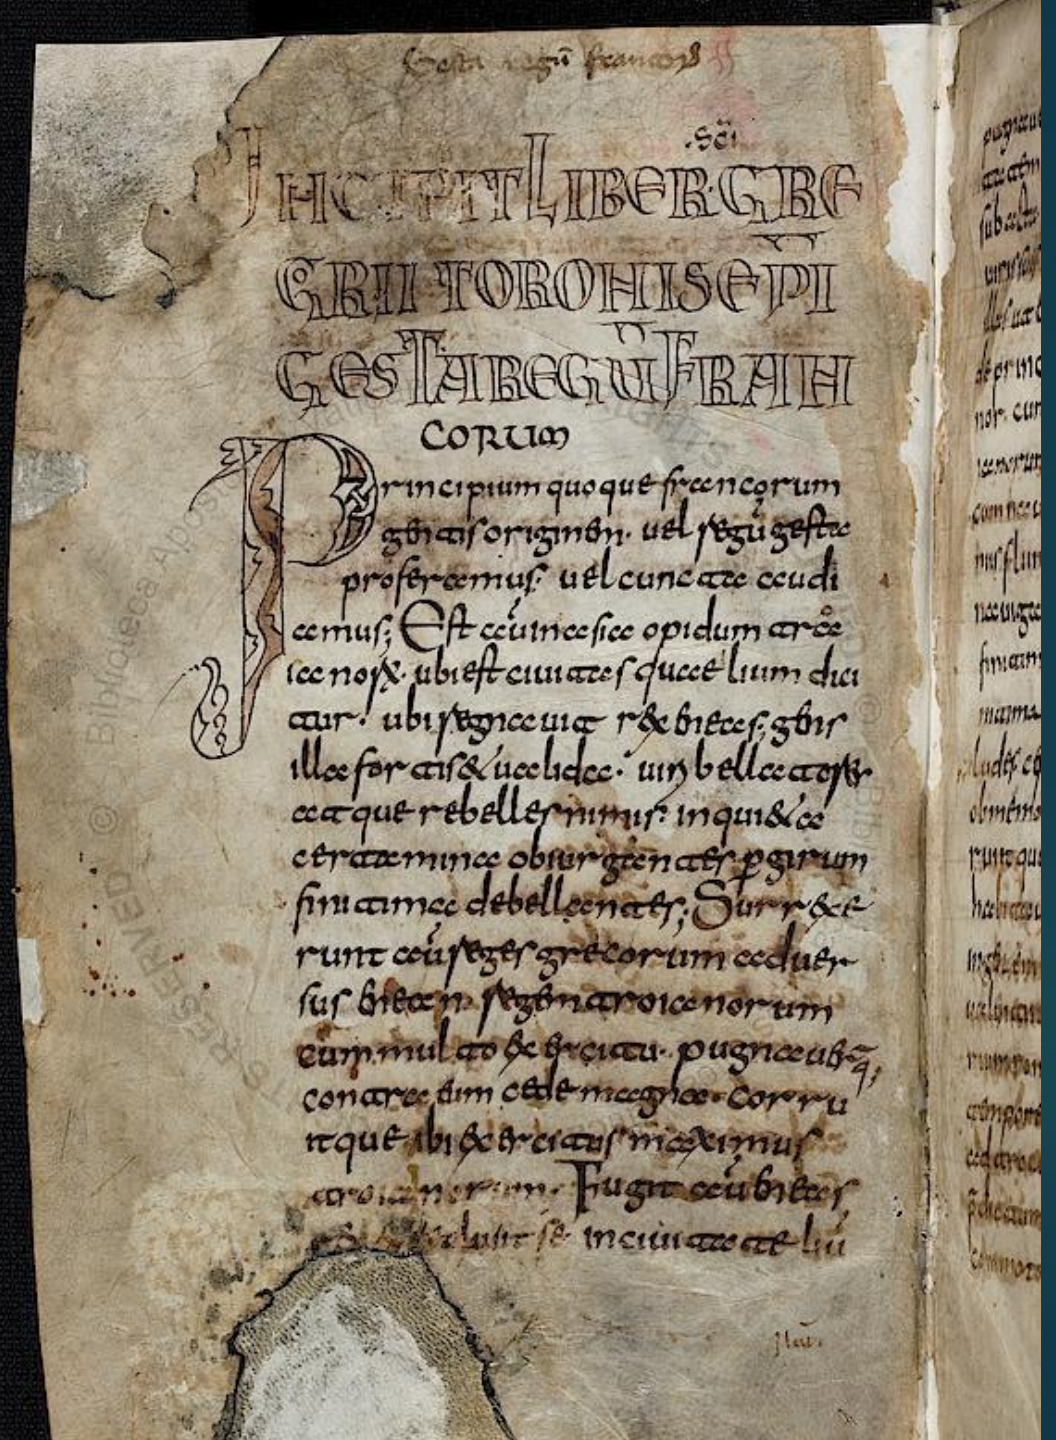 Gesta regū francorꝝ
.sc̄i.
INCIPIT LIBER· GRE
GRII TORONIS EP̄I
GESTA REGŪ FRAN
CORUM
Principium quoque francorum
gentis originem· vel regū gesta
proferamus; vel cuncta audi
amus; Est au̅ in asia opidum troa
ianorꝝ· ubi est civitas quae lium dici
tur· ubi regnavit rex eneas; gens
illa fortis & valida· viri bellatores
atque rebelles nimis· inqui&a
certamina obiurgantes ꝑ girum
finitima debellantes; Surrexe
runt au̅ reges grecorum adver
sus enean regem troianorum
cum multo exercitu· pugnavert̅q;
contra eum cede magna· corru
itque ibi exercitus maximus
troianorum· Fugit au̅ eneas
se in civitate liū